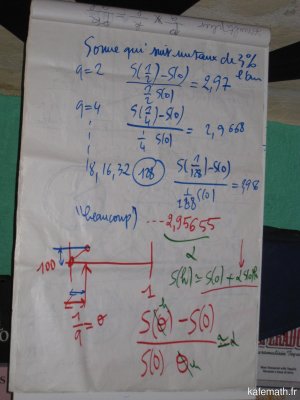 Somme qui suit un taux de 3%
l'an
q=2 S(1/2)-S(0) / 1/2 S(0) = 2,97
q=4 S(1/4)-S(0) / 1/4 S(0) = 2,9668
8, 16, 32 128 S(1/128)-S(0) / 1/128 S(0) =
"beaucoup" --- 2,95655
α
100
S(h) ≃ S(0) + α S(0)h
1
1/q = θ
S(h) - S(0) / S(0) h ≃ α
kafemath.fr